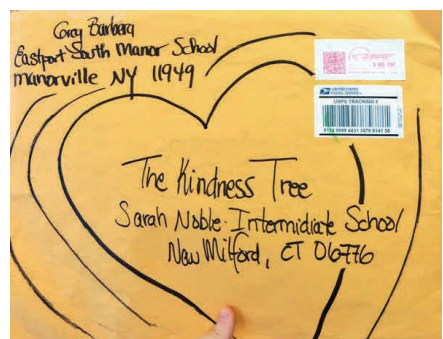 Greg Barberg
Eastport South Manor School
Manorville NY 11949
UNITED STATES
POSTAL SERVICE
USPS TRACKING #
The Kindness Tree
Sarah Noble Intermidiate School
New Milford, CT 06776